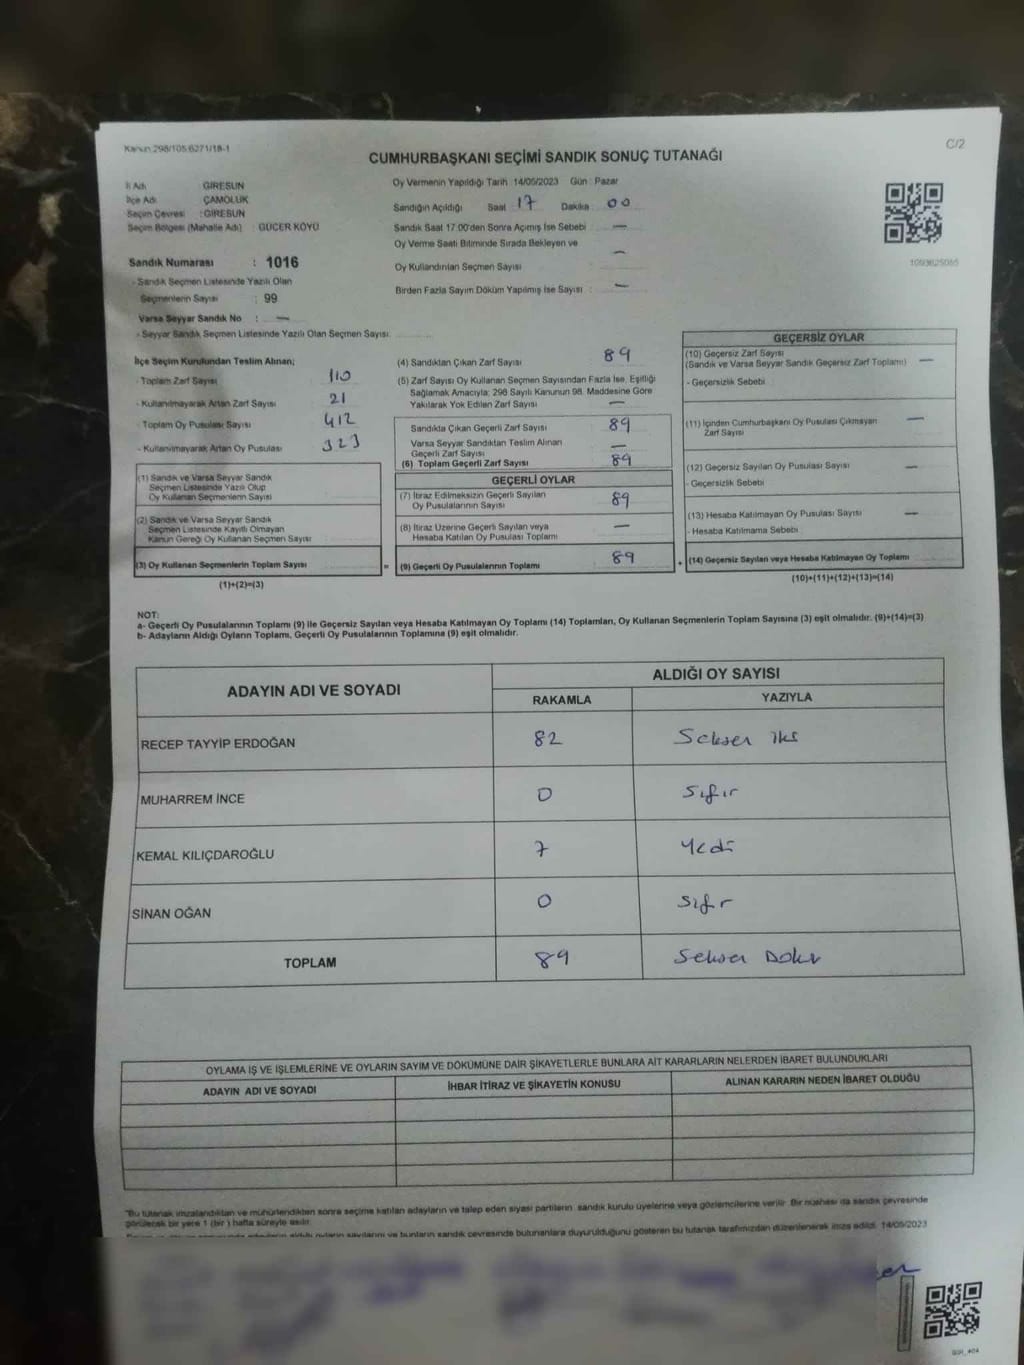 Kanun 298/105 6271/18-1
C/2
CUMHURBAŞKANI SEÇİMİ SANDIK SONUÇ TUTANAĞI
İl Adı GİRESUN
İlçe Adı ÇAMOLUK
Seçim Çevresi : GİRESUN
Seçim Bölgesi (Mahalle Adı) : GÜCER KÖYÜ
Sandık Numarası : 1016
- Sandık Seçmen Listesinde Yazılı Olan
Seçmenlerin Sayısı : 99
Varsa Seyyar Sandık No : —
- Seyyar Sandık Seçmen Listesinde Yazılı Olan Seçmen Sayısı
Oy Vermenin Yapıldığı Tarih : 14/05/2023 Gün : Pazar
Sandığın Açıldığı Saat 17 Dakika : 00
Sandık Saat 17:00'den Sonra Açımış İse Sebebi : —
Oy Verme Saati Bitiminde Sırada Bekleyen ve
Oy Kullandırılan Seçmen Sayısı —
Birden Fazla Sayım Döküm Yapılmış İse Sayısı : —
İlçe Seçim Kurulundan Teslim Alınan;
- Toplam Zarf Sayısı 110
- Kullanılmayarak Artan Zarf Sayısı 21
- Toplam Oy Pusulası Sayısı 412
- Kullanılmayarak Artan Oy Pusulası 323
(1) Sandık ve Varsa Seyyar Sandık
Seçmen Listesinde Yazılı Olup
Oy Kullanan Seçmenlerin Sayısı
(2) Sandık ve Varsa Seyyar Sandık
Seçmen Listesinde Kayıtlı Olmayan
Kanun Gereği Oy Kullanan Seçmen Sayısı
(3) Oy Kullanan Seçmenlerin Toplam Sayısı
(1)+(2)=(3)
(4) Sandıktan Çıkan Zarf Sayısı 89
(5) Zarf Sayısı Oy Kullanan Seçmen Sayısından Fazla İse, Eşitliği
Sağlamak Amacıyla; 298 Sayılı Kanunun 98. Maddesine Göre
Yakılarak Yok Edilen Zarf Sayısı —
Sandıkta Çıkan Geçerli Zarf Sayısı 89
Varsa Seyyar Sandıktan Teslim Alınan
Geçerli Zarf Sayısı —
(6) Toplam Geçerli Zarf Sayısı 89
GEÇERLİ OYLAR
(7) İtiraz Edilmeksizin Geçerli Sayılan
Oy Pusulalarının Sayısı 89
(8) İtiraz Üzerine Geçerli Sayılan veya
Hesaba Katılan Oy Pusulası Toplamı —
= (9) Geçerli Oy Pusulalarının Toplamı 89
1093625065
GEÇERSİZ OYLAR
(10) Geçersiz Zarf Sayısı
(Sandık ve Varsa Seyyar Sandık Geçersiz Zarf Toplamı) —
- Geçersizlik Sebebi
(11) İçinden Cumhurbaşkanı Oy Pusulası Çıkmayan
Zarf Sayısı —
(12) Geçersiz Sayılan Oy Pusulası Sayısı —
- Geçersizlik Sebebi
(13) Hesaba Katılmayan Oy Pusulası Sayısı —
- Hesaba Katılmama Sebebi
+ (14) Geçersiz Sayılan veya Hesaba Katılmayan Oy Toplamı
(10)+(11)+(12)+(13)=(14)
NOT:
a- Geçerli Oy Pusulalarının Toplamı (9) ile Geçersiz Sayılan veya Hesaba Katılmayan Oy Toplamı (14) Toplamları, Oy Kullanan Seçmenlerin Toplam Sayısına (3) eşit olmalıdır. (9)+(14)=(3)
b- Adayların Aldığı Oyların Toplamı, Geçerli Oy Pusulalarının Toplamına (9) eşit olmalıdır.
ADAYIN ADI VE SOYADI
ALDIĞI OY SAYISI
RAKAMLA YAZIYLA
RECEP TAYYİP ERDOĞAN 82 Seksen iki
MUHARREM İNCE 0 Sıfır
KEMAL KILIÇDAROĞLU 7 Yedi
SİNAN OĞAN 0 Sıfır
TOPLAM 89 Seksen Dokuz
OYLAMA İŞ VE İŞLEMLERİNE VE OYLARIN SAYIM VE DÖKÜMÜNE DAİR ŞİKAYETLERLE BUNLARA AİT KARARLARIN NELERDEN İBARET BULUNDUKLARI
ADAYIN ADI VE SOYADI İHBAR İTİRAZ VE ŞİKAYETİN KONUSU ALINAN KARARIN NEDEN İBARET OLDUĞU
"Bu tutanak imzalandıktan ve mühürlendikten sonra seçime katılan adayların ve talep eden siyasi partilerin sandık kurulu üyelerine veya gözlemcilerine verilir. Bir nüshası da sandık çevresinde
görülecek bir yere 1 (bir ) hafta süreyle asılır.
oyların sayılarını ve bunların sandık çevresinde bulunanlara duyurulduğunu gösteren bu tutanak tarafımızdan düzenlenerek imza edildi. 14/05/2023